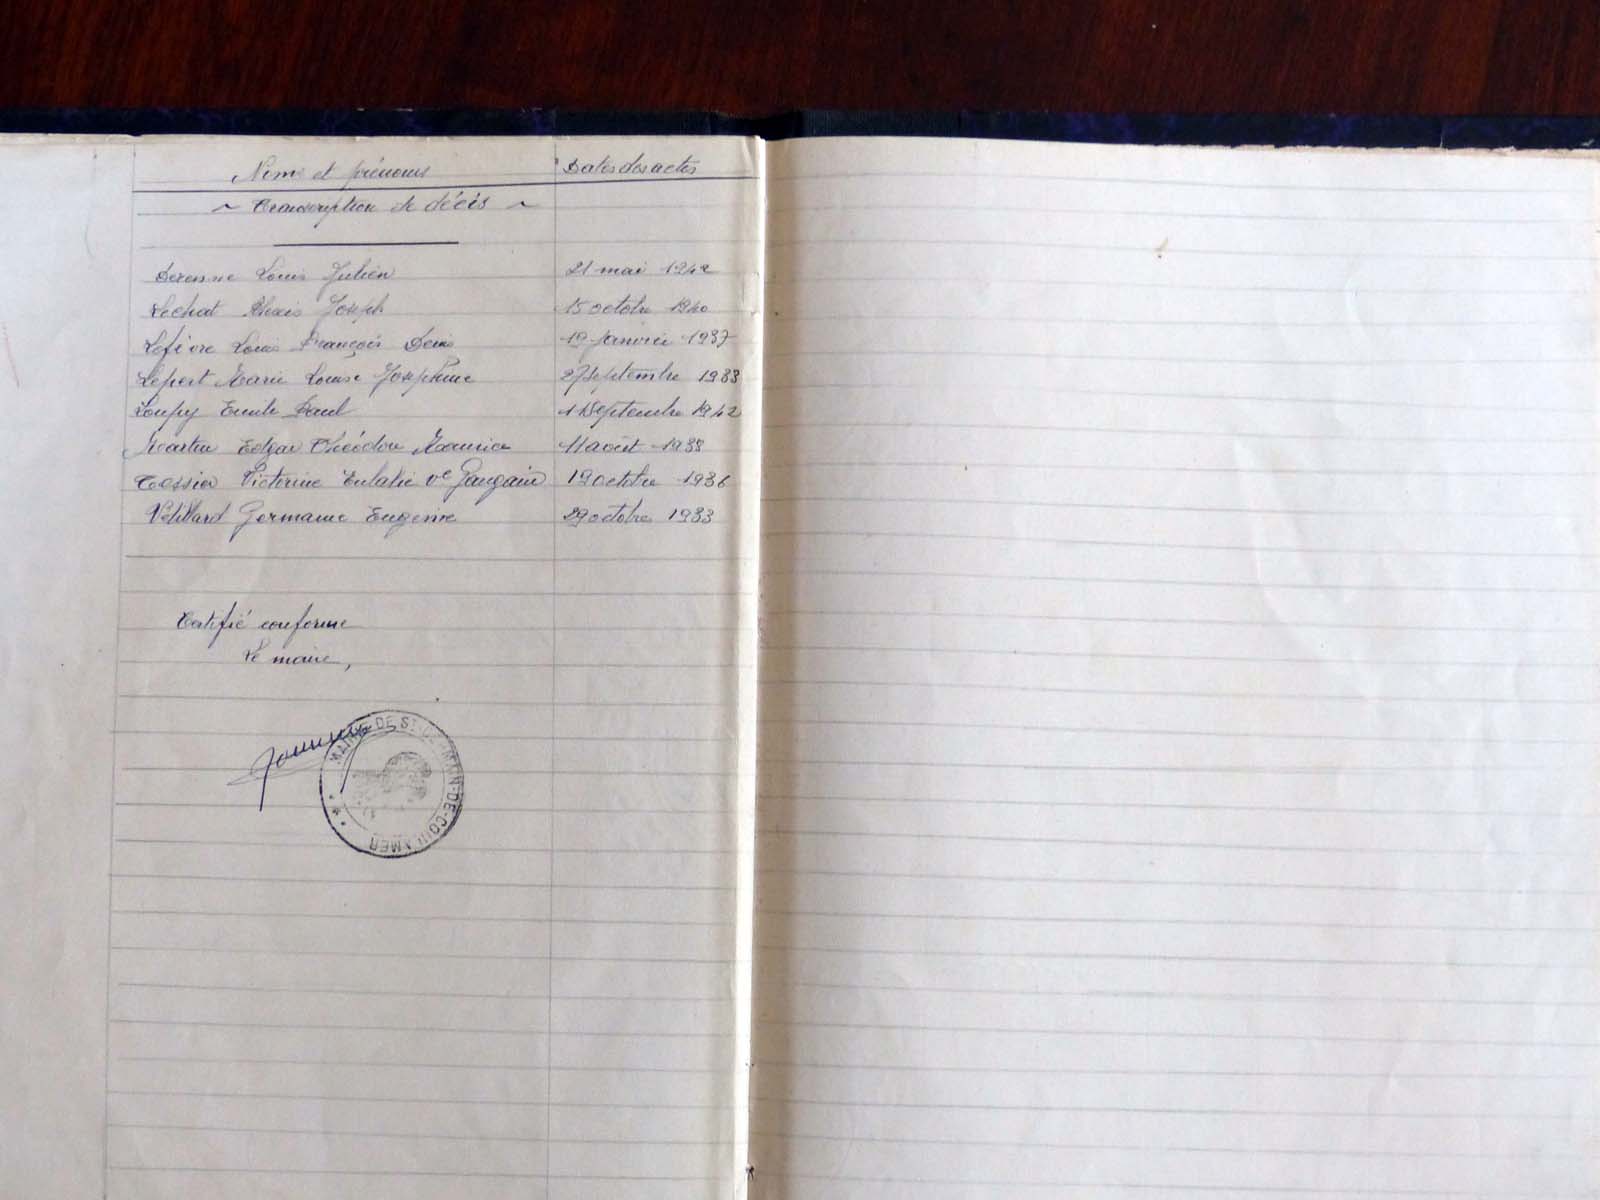 Noms et prénoms Dates des actes
~ Transcription de décès ~
Derenne Louis Julien 21 mai 1942
Lechat Alexis Joseph 15 octobre 1940
Lefèvre Louis François Denis 19 janvier 1937
Lepert Marie Louise Joséphine 27 septembre 1933
Loupy Emile Paul septembre 1942
Martin Edgar Théodore Maurice 11 août
Tessier Victorine Eulalie Ve Gaugain 19 octobre 1936
Vétillard Germaine Eugénie 29 octobre 1933
Certifié conforme
Le maire,
MAIRIE DE ST-GERMAIN-DE-COULAMER